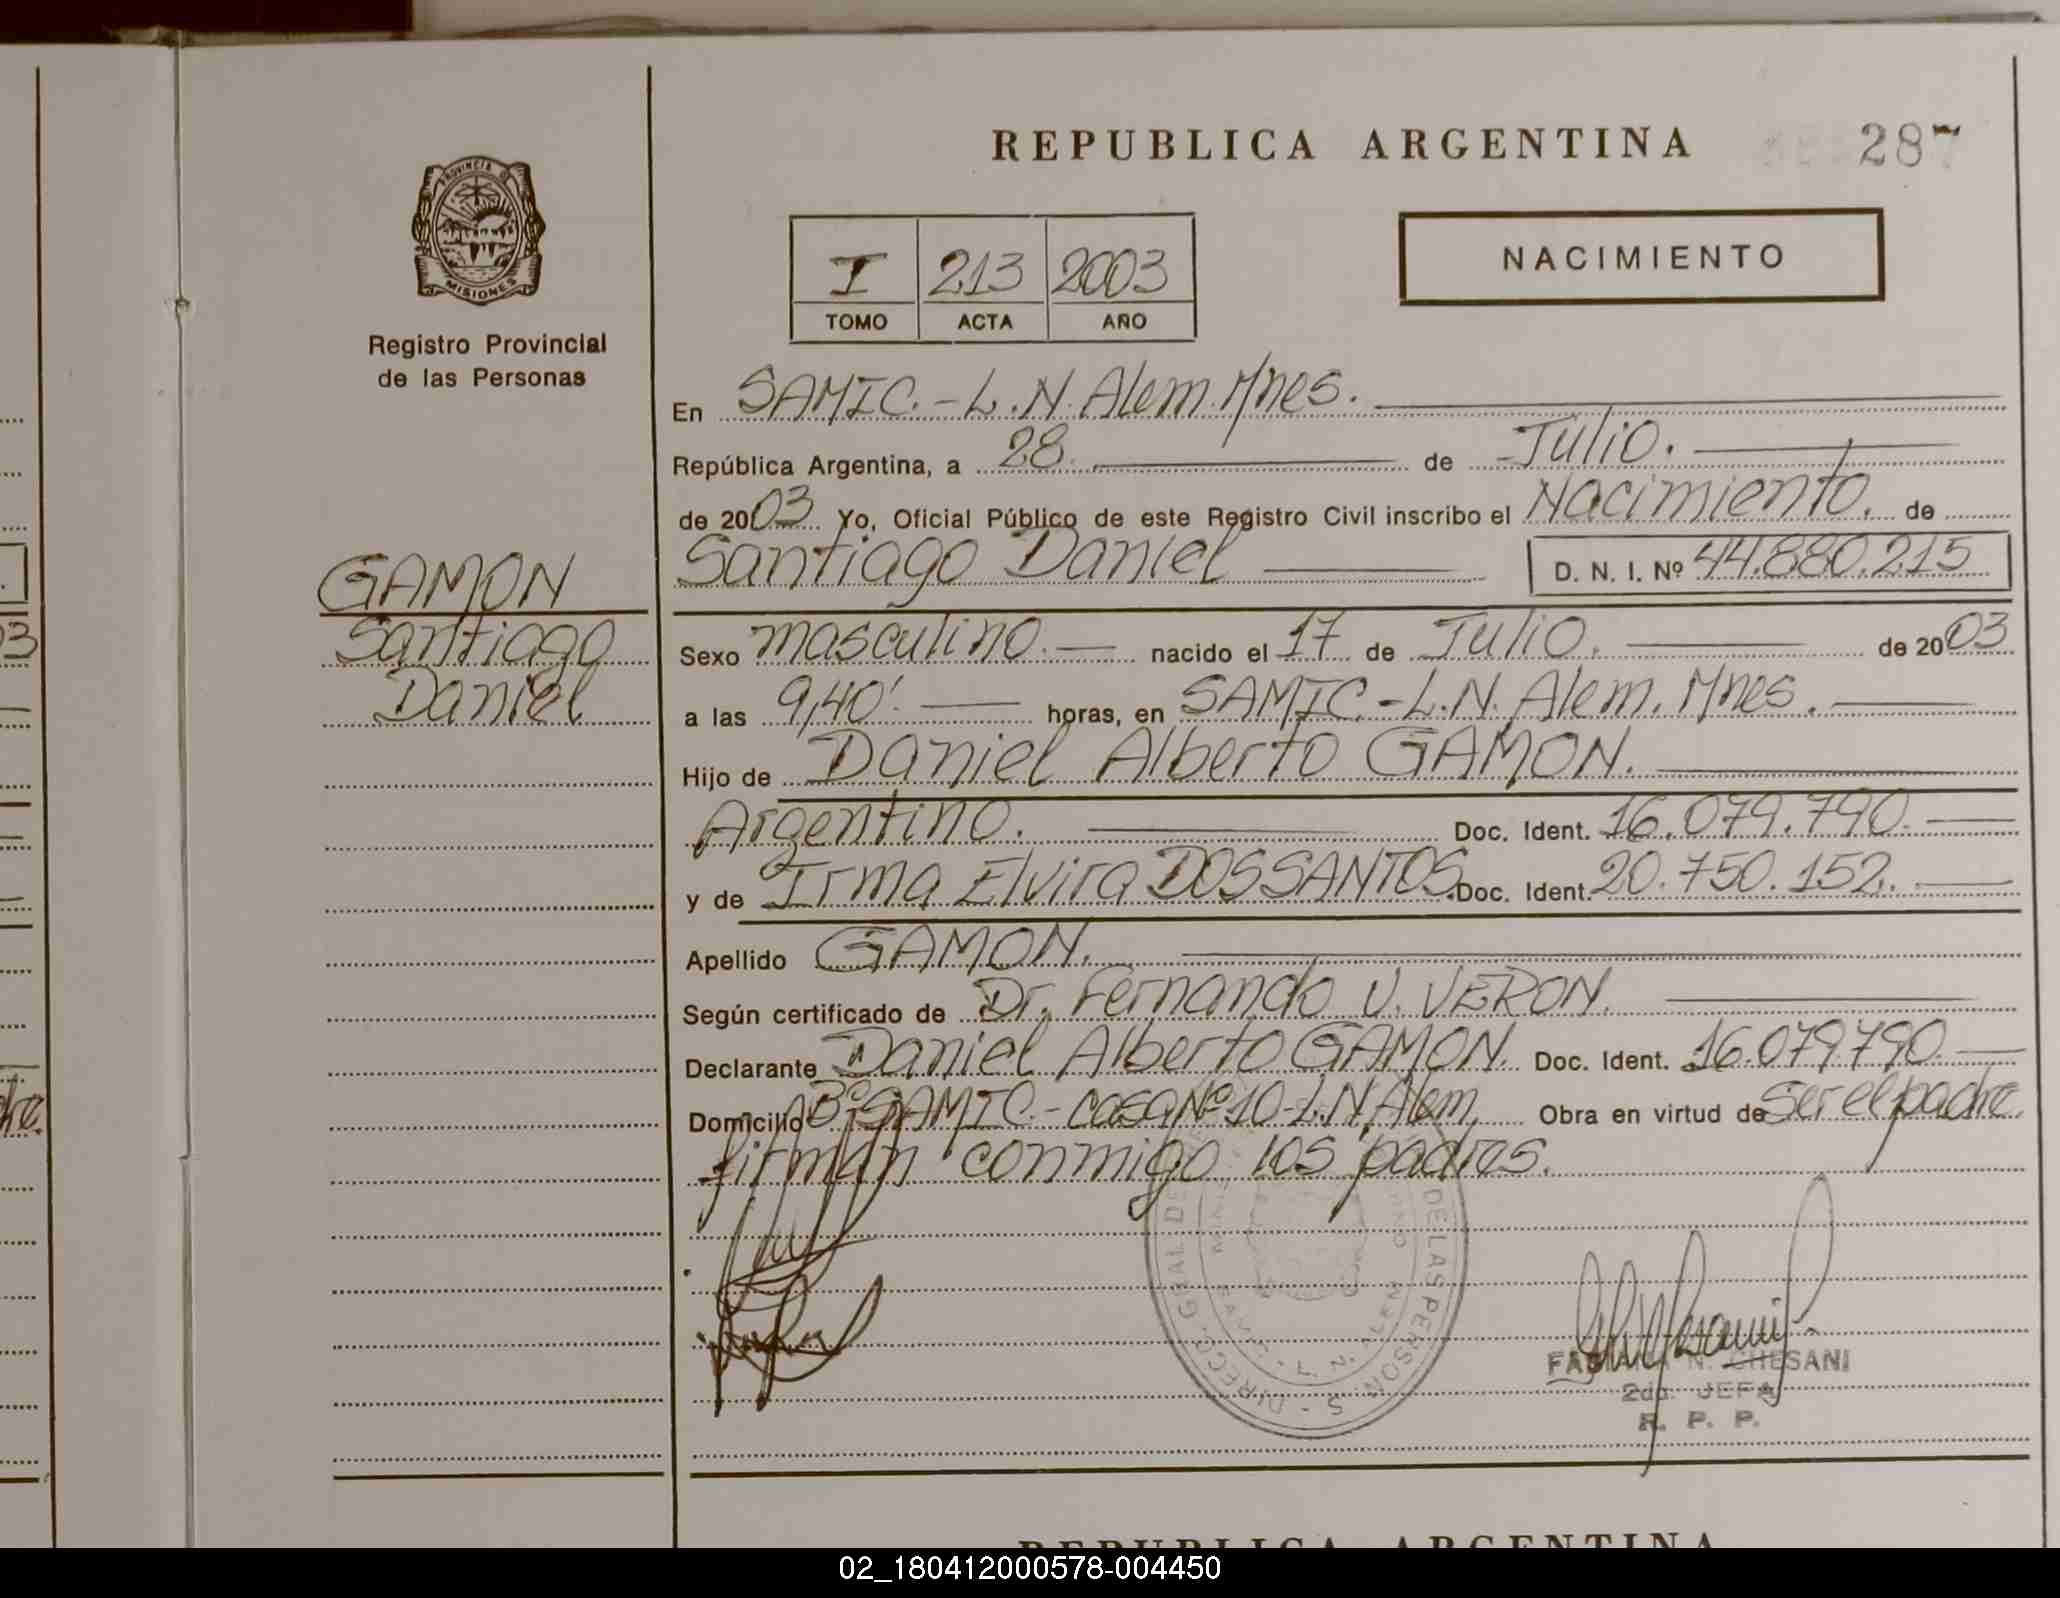 REPUBLICA ARGENTINA
287
PROVINCIA DE
MISIONES
Registro Provincial
de las Personas
I 213 2003
TOMO ACTA AÑO
NACIMIENTO
En SAMIC.-L.N. Alem. Mnes.
República Argentina, a 28 de Julio.
de 2003 Yo, Oficial Público de este Registro Civil inscribo el Nacimiento. de
Santiago Daniel D. N. I. Nº 44.880.215
GAMON
Santiago
Daniel
Sexo masculino. nacido el 17 de Julio. de 2003
a las 9,40'. horas, en SAMIC.-L.N. Alem. Mnes.
Hijo de Daniel Alberto GAMON.
Argentino. Doc. Ident. 16.079.790.
y de Irma Elvira DOS SANTOS. Doc. Ident. 20.750.152.
Apellido GAMON.
Según certificado de Dr. Fernando U. VERON.
Declarante Daniel Alberto GAMON. Doc. Ident. 16.079.790
Domicilio Bº SAMIC.- casa Nº 10-L.N. Alem. Obra en virtud de ser el padre.
firman conmigo los padres.
DIRECC. GRAL DE LAS PERSON
SAMIC - L. N. ALEM
N. GHESANI
2da. JEFA
R. P. P.
REPUBLICA ARGENTINA
02_180412000578-004450